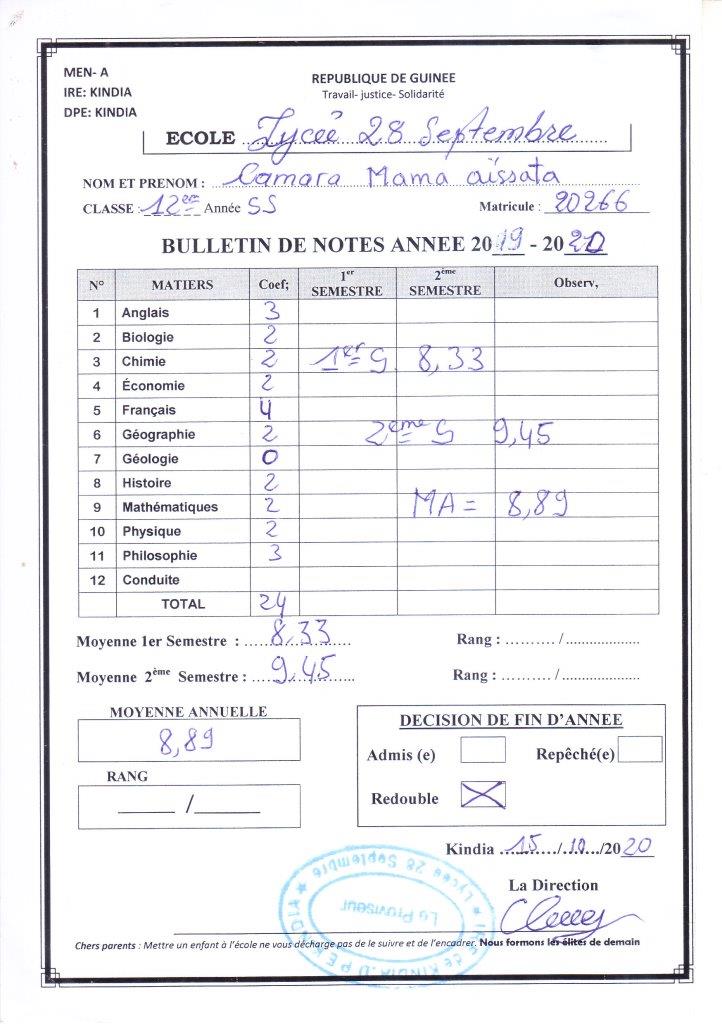 MEN- A
IRE: KINDIA
DPE: KINDIA
REPUBLIQUE DE GUINEE
Travail- justice- Solidarité
ECOLE Lycée 28 Septembre
NOM ET PRENOM : Camara Mama aïssata
CLASSE : 12em Année SS Matricule : 20266
BULLETIN DE NOTES ANNEE 2019 - 2020
N° MATIERS Coef; 1er SEMESTRE 2ème SEMESTRE Observ,
1 Anglais 3
2 Biologie 2
3 Chimie 2 1er S 8,33
4 Économie 2
5 Français 4
6 Géographie 2 2eme S 9,45
7 Géologie 0
8 Histoire 2
9 Mathématiques 2 MA = 8,89
10 Physique 2
11 Philosophie 3
12 Conduite
TOTAL 24
Moyenne 1er Semestre : 8,33 Rang : ......... / ...................
Moyenne 2ème Semestre : 9,45 Rang : ......... / ...................
MOYENNE ANNUELLE
8,89
RANG
______ /_______
DECISION DE FIN D'ANNEE
Admis (e) Repêché(e)
Redouble X
Kindia 15/10/2020
La Direction
Lycée 28 Septembre
Le Proviseur
IRE de KINDIA.DPE KINDIA
Chers parents : Mettre un enfant à l'école ne vous décharge pas de le suivre et de l'encadrer. Nous formons les élites de demain